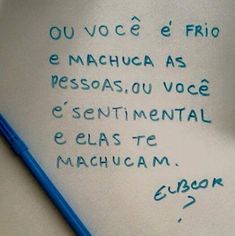 OU VOCÊ é FRIO
E MACHUCA AS
PESSOAS, OU VOCÊ
É SENTIMENTAL
E ELAS TE
MACHUCAM.
?